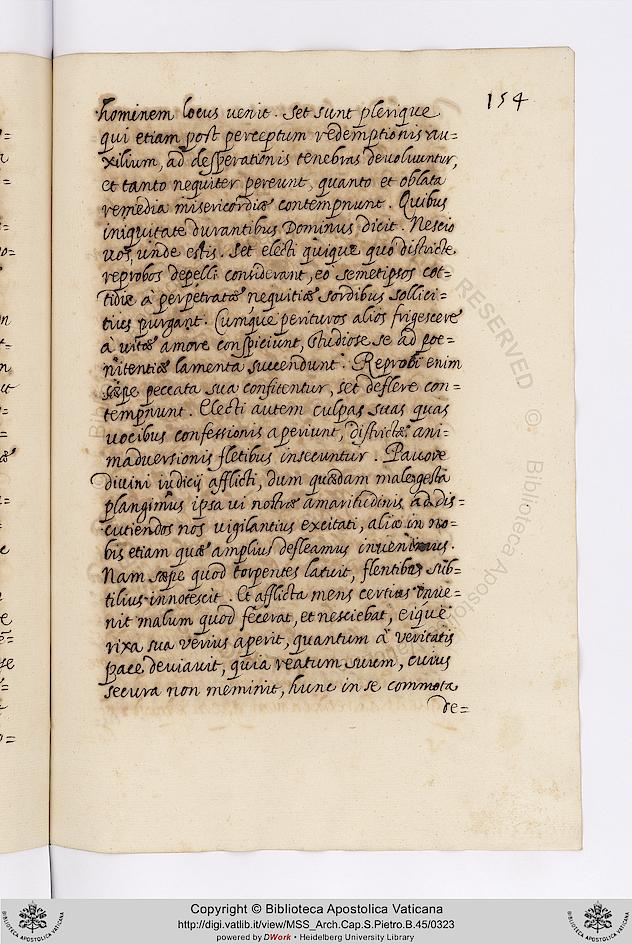 154
hominem locus uenit. Set sunt plerique
qui etiam post perceptum redemptionis au=
xilium, ad desperationis tenebras deuoluuntur,
et tanto nequiter pereunt, quanto et oblata
remedia misericordiæ contempnunt. Quibus
iniquitate durantibus Dominus dicit. Nescio
uos unde estis. Set electi quique quo districte
reprobos depelli considerant, eo semetipsos cot=
tidie à perpetratæ nequitiæ sordibus sollici=
tius purgant. Cumque perituros alios frigescere
à uitæ amore conspiciunt, studiose se ad poe=
nitentiæ lamenta succendunt. Reprobi enim
sæpe peccata sua confitentur, set deflere con=
tempnunt. Electi autem culpas suas quas
uocibus confessionis aperiunt, districtæ ani=
maduersionis fletibus insecuntur. Pauore
diuini iudicij afflicti, dum quædam male gesta
plangimus ipsa ui nostræ amaritudinis ad dis=
cutiendos nos uigilantius excitati, alia in no=
bis etiam quæ amplius defleamus inuenimus.
Nam sæpe quod torpentes latuit, flentibus sub=
tilius innotescit. Et afflicta mens certius inue=
nit malum quod fecerat, et nesciebat, eique
rixa sua verius aperit, quantum à veritatis
pace deuiauit, quia reatum suum, cuius
secura non meminit, hunc in se commota
de=
RESERVED © Biblioteca Apostolica
Copyright © Biblioteca Apostolica Vaticana
http://digi.vatlib.it/view/MSS_Arch.Cap.S.Pietro.B.45/0323
powered by DWork • Heidelberg University Library